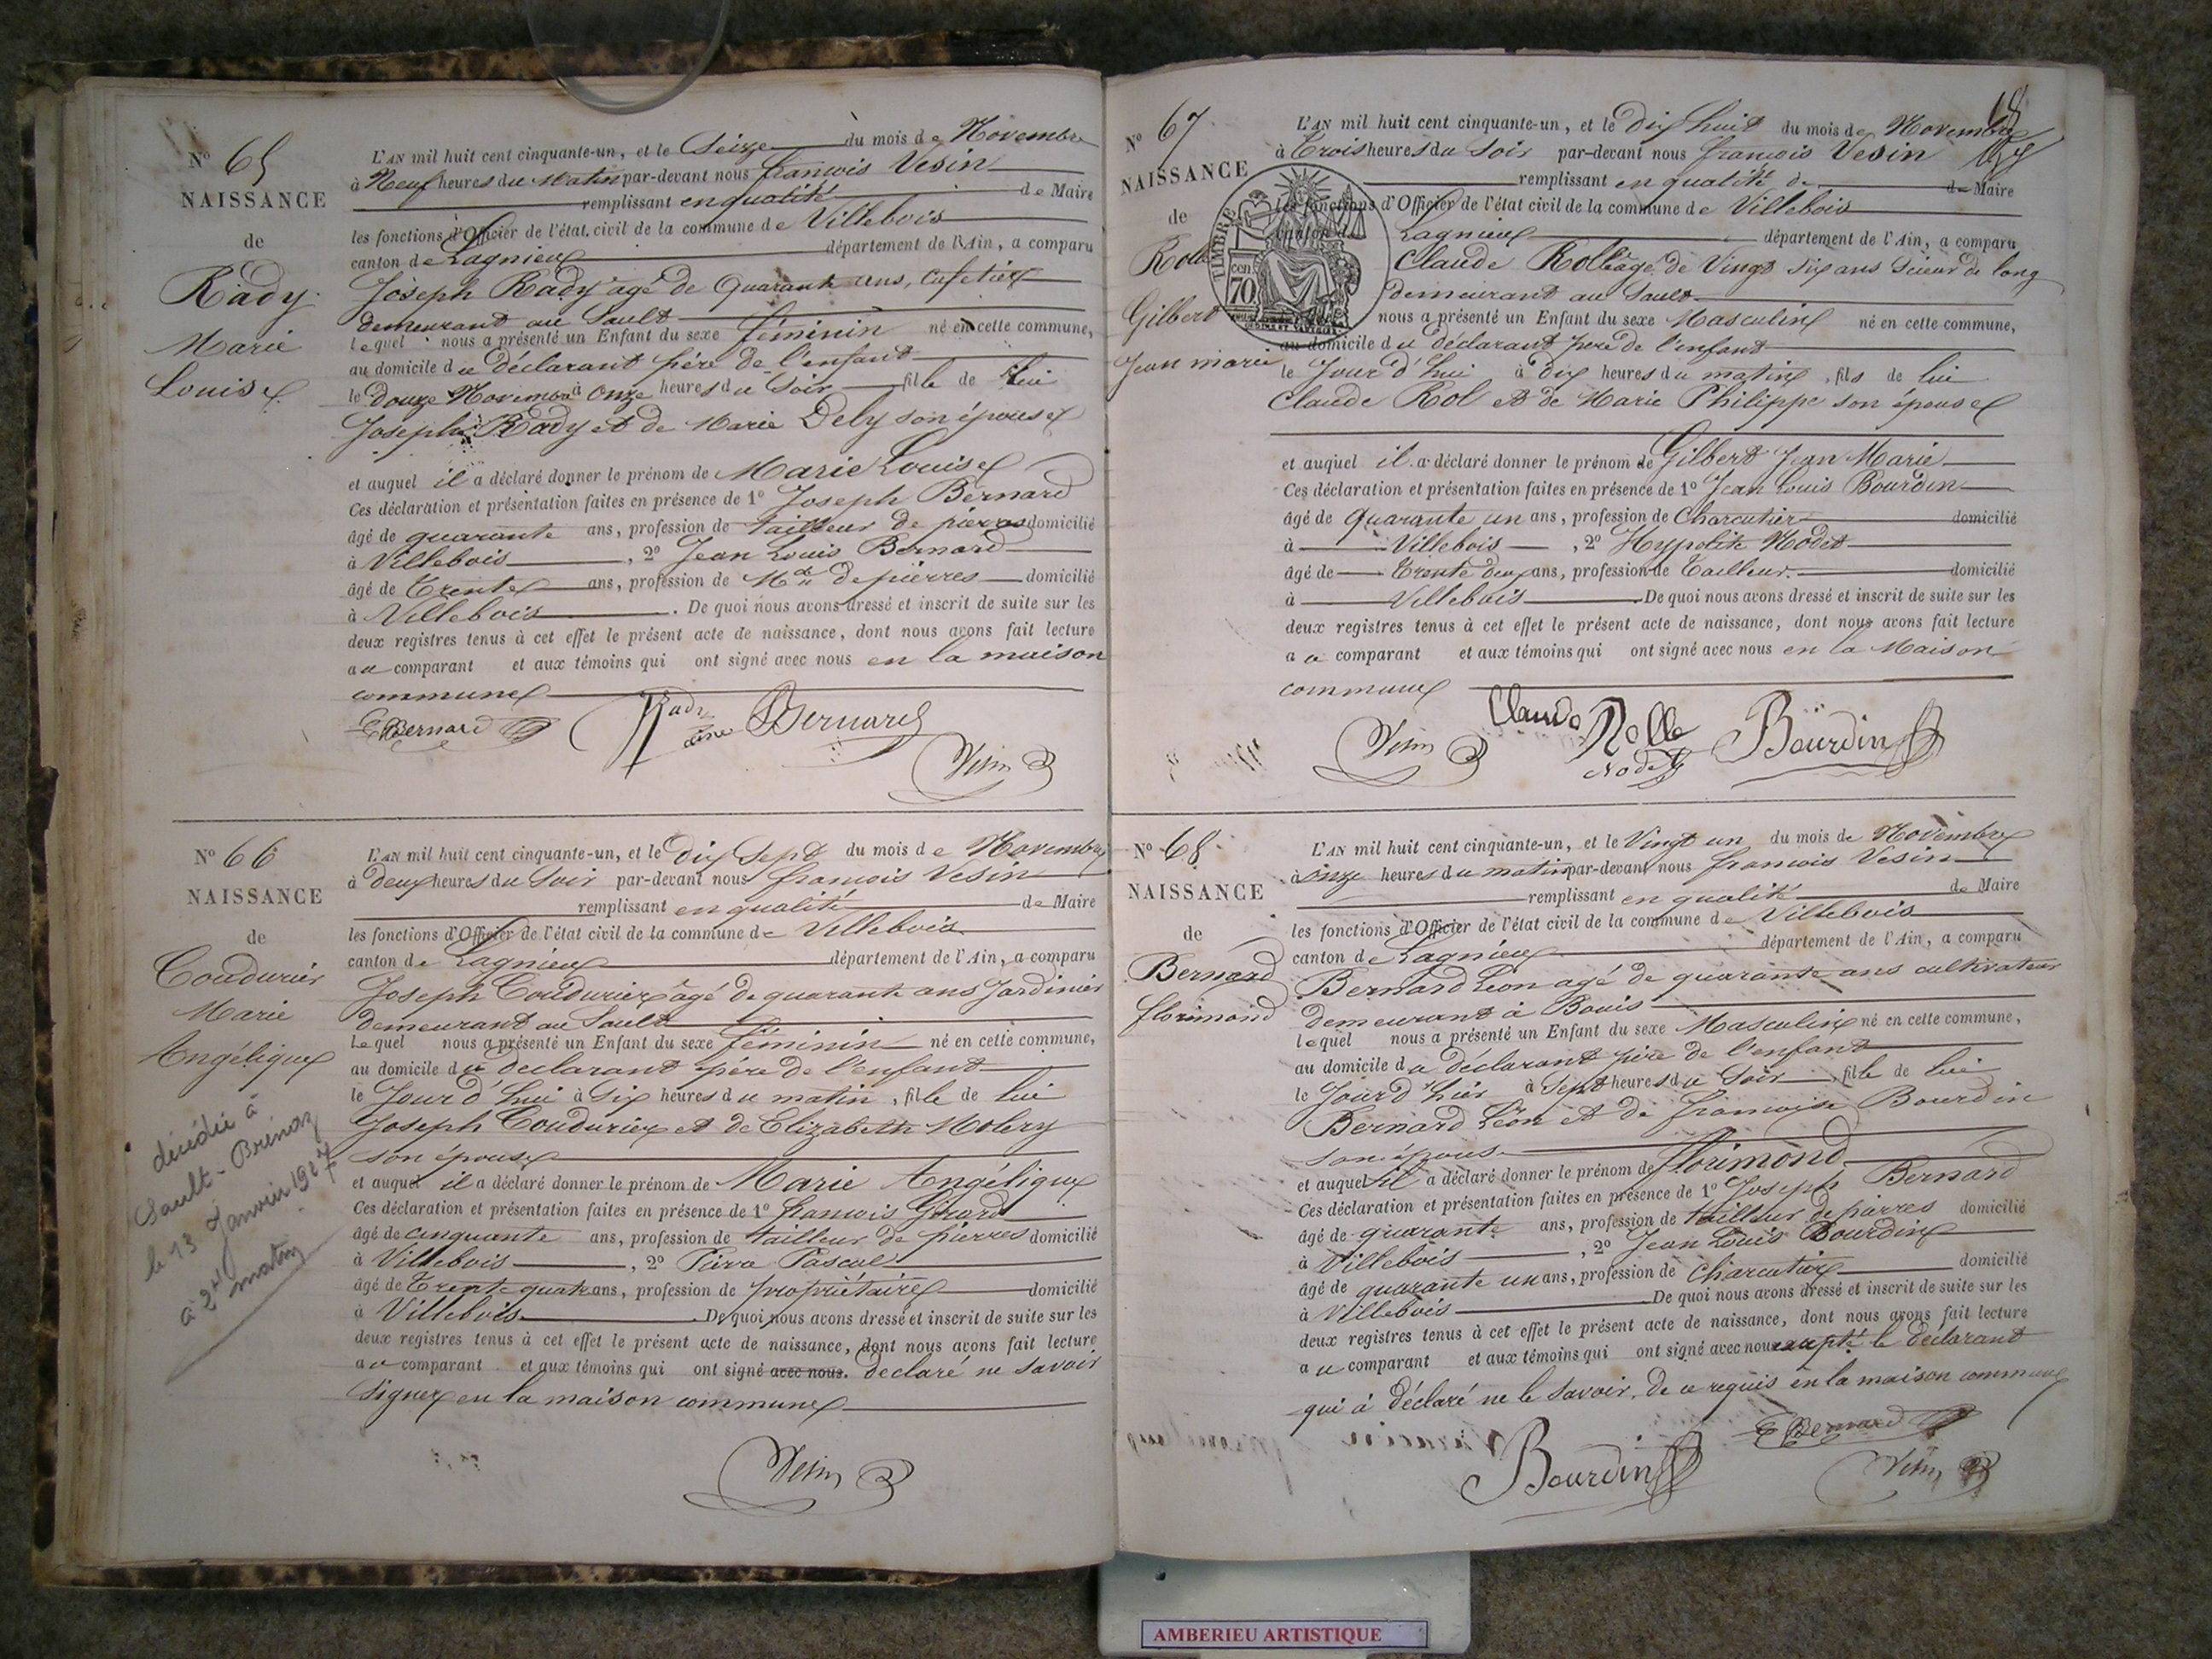 N° 65
NAISSANCE
de
Rady
Marie
Louise
L'AN mil huit cent cinquante-un, et le Seize du mois de Novembre
à Neuf heures du Matin par-devant nous françois Vesin
remplissant en qualité de Maire
les fonctions d'Officier de l'état civil de la commune de Villebois
canton de Lagnieu département de l'Ain, a comparu
Joseph Rady agé de Quarante ans, Cafetier
demeurant au Sault
Lequel nous a présenté un Enfant du sexe féminin né en cette commune,
au domicile du déclarant père de l'enfant
le douze Novembre à onze heures du Soir fille de lui
Joseph Rady et de Marie Dely son épouse
et auquel il a déclaré donner le prénom de Marie Louise
Ces déclaration et présentation faites en présence de 1° Joseph Bernard
âgé de quarante ans, profession de tailleur de pierres domicilié
à Villebois, 2° Jean Louis Bernard
âgé de Trente ans, profession de Md de pierres domicilié
à Villebois. De quoi nous avons dressé et inscrit de suite sur les
deux registres tenus à cet effet le présent acte de naissance, dont nous avons fait lecture
au comparant et aux témoins qui ont signé avec nous en la maison
commune
Bernard Rady aine Bernard
Vesin
N° 66
NAISSANCE
de
Coudurier
Marie
Angélique
décédée à
Sault-Brénaz
le 13 Janvier 1927
à 2h matin
L'AN mil huit cent cinquante-un, et le dix Sept du mois de Novembre
à deux heures du Soir par-devant nous françois Vesin
remplissant en qualité de Maire
les fonctions d'Officier de l'état civil de la commune de Villebois
canton de Lagnieu département de l'Ain, a comparu
Joseph Coudurier âgé de quarante ans Jardinier
demeurant au Sault
Lequel nous a présenté un Enfant du sexe féminin né en cette commune,
au domicile du déclarant père de l'enfant
le Jour d'hui à Six heures du matin, fille de lui
Joseph Coudurier et de Elizabeth Molery
son épouse
et auquel il a déclaré donner le prénom de Marie Angélique
Ces déclaration et présentation faites en présence de 1° françois Girard
âgé de cinquante ans, profession de tailleur de pierres domicilié
à Villebois, 2° Pascal
âgé de Trente quatre ans, profession de propriétaire domicilié
à Villebois. De quoi nous avons dressé et inscrit de suite sur les
deux registres tenus à cet effet le présent acte de naissance, dont nous avons fait lecture
au comparant et aux témoins qui ont signé avec nous. declaré ne savoir
signer en la maison commune
Vesin
68
N° 67
NAISSANCE
de
Rolle
Gilbert
Jean marie
TIMBRE
70 cen
L'AN mil huit cent cinquante-un, et le Dix huit du mois de Novembre
à Trois heures du Soir par-devant nous françois Vesin
remplissant en qualité de de Maire
les fonctions d'Officier de l'état civil de la commune de Villebois
canton de Lagnieu département de l'Ain, a comparu
Claude Rolle âgé de Vingt Six ans Scieur de long
demeurant au Sault
nous a présenté un Enfant du sexe Masculin né en cette commune,
au domicile du déclarant père de l'enfant
le Jour d'hui à dix heures du matin, fils de lui
Claude Rol et de Marie Philippe son épouse
et auquel il a déclaré donner le prénom de Gilbert Jean Marie
Ces déclaration et présentation faites en présence de 1° Jean Louis Bourdin
âgé de Quarante un ans, profession de Charcutier domicilié
à Villebois, 2° Hypolite Nodet
âgé de Trente deux ans, profession de Tailleur. domicilié
à Villebois. De quoi nous avons dressé et inscrit de suite sur les
deux registres tenus à cet effet le présent acte de naissance, dont nous avons fait lecture
au comparant et aux témoins qui ont signé avec nous en la Maison
commune
Vesin Claude Rolle Bourdin
Nodet
N° 68
NAISSANCE
de
Bernard
florimond
L'AN mil huit cent cinquante-un, et le Vingt un du mois de Novembre
à onze heures du matin par-devant nous françois Vesin
remplissant en qualité de Maire
les fonctions d'Officier de l'état civil de la commune de Villebois
canton de Lagnieu département de l'Ain, a comparu
Bernard Léon agé de quarante ans cultivateur
demeurant à Bouis
lequel nous a présenté un Enfant du sexe Masculin né en cette commune,
au domicile du déclarant père de l'enfant
le Jour d'hier à Sept heures du Soir, fils de lui
Bernard Léon et de françoise Bourdin
son épouse
et auquel il a déclaré donner le prénom de florimond
Ces déclaration et présentation faites en présence de 1° Joseph Bernard
âgé de quarante ans, profession de tailleur de pierres domicilié
à Villebois, 2° Jean Louis Bourdin
âgé de quarante un ans, profession de Charcutier domicilié
à Villebois. De quoi nous avons dressé et inscrit de suite sur les
deux registres tenus à cet effet le présent acte de naissance, dont nous avons fait lecture
au comparant et aux témoins qui ont signé avec nous excepté le déclarant
qui à déclaré ne le savoir, de ce requis en la maison commune
Bernard
Bourdin Vesin
AMBERIEU ARTISTIQUE